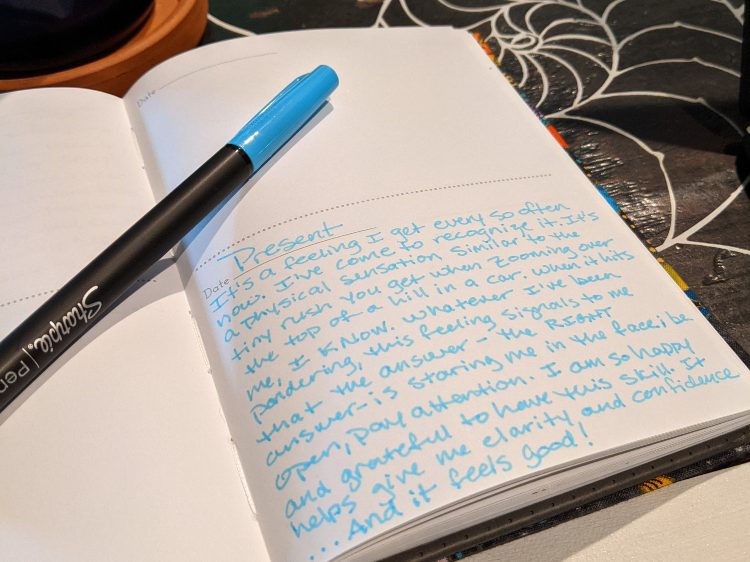 Date
Present
Date
It's a feeling I get every so often
now. I've come to recognize it. It's
a physical sensation similar to the
tiny rush you get when zooming over
the top of a hill in a car. When it hits
me, I KNOW. Whatever I've been
pondering, this feeling signals to me
that the answer - the RIGHT
answer - is staring me in the face; be
open, pay attention. I am so happy
and grateful to have this skill. It
helps give me clarity and confidence
... And it feels good!
Sharpie. | Pen